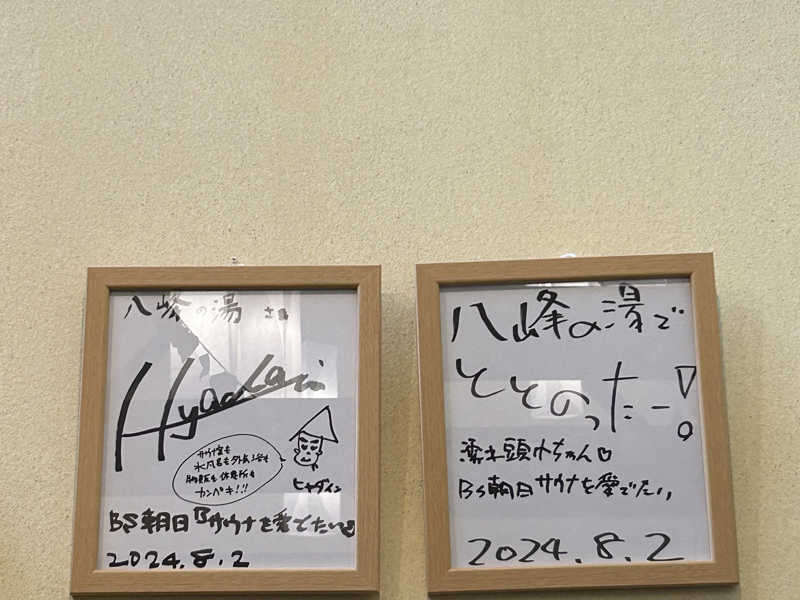 八峰の湯 さん
Hyadain
サウナ室も
水風呂も外気浴も
休憩所も
カンペキ!!!
ヒャダイン
BS朝日『サウナを愛でたい』
2024.8.2
八峰の湯で
ととのったー!
濡れ頭巾ちゃん
BS朝日サウナを愛でたい
2024.8.2